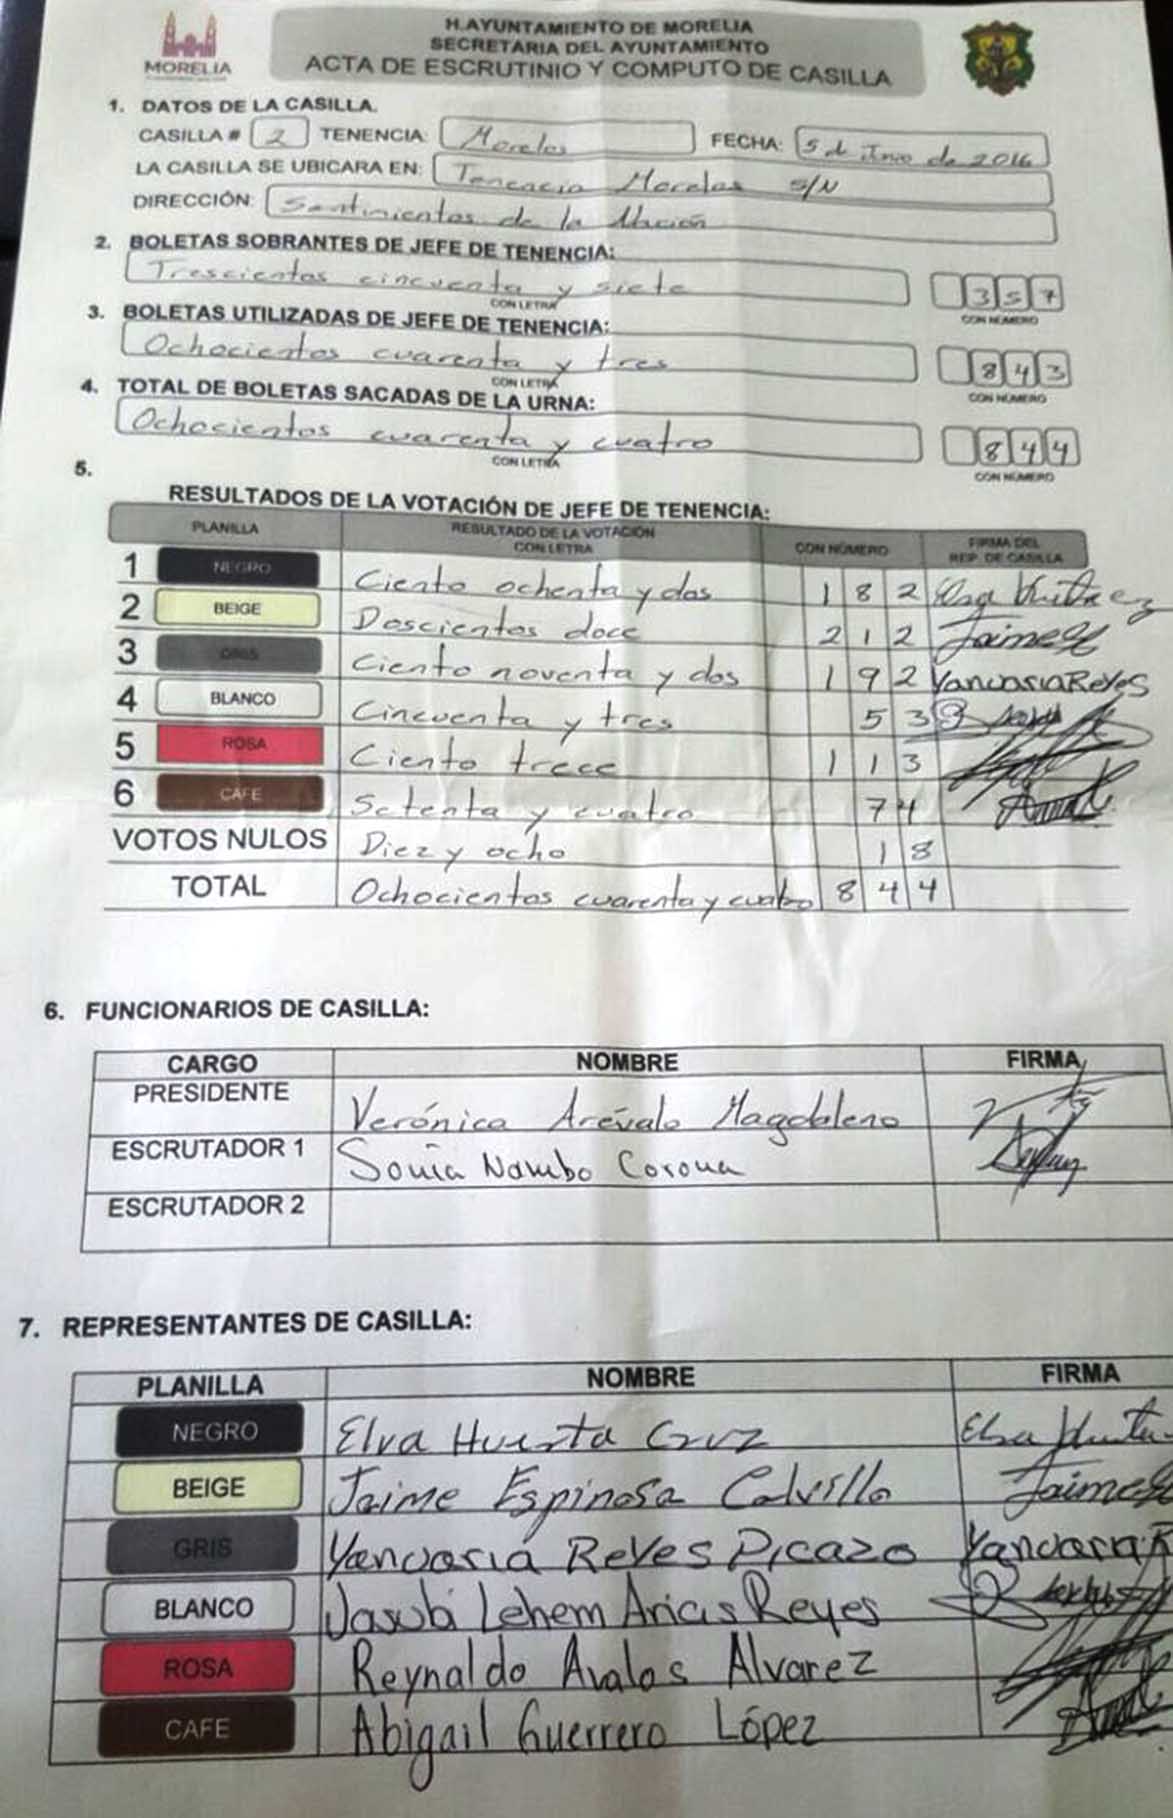 H. AYUNTAMIENTO DE MORELIA
SECRETARIA DEL AYUNTAMIENTO
ACTA DE ESCRUTINIO Y COMPUTO DE CASILLA
MORELIA
1. DATOS DE LA CASILLA.
CASILLA # 2 TENENCIA: Morelos FECHA: 5 d Junio de 2016
LA CASILLA SE UBICARA EN: Tenencia Morelos S/N
DIRECCIÓN: Sentimientos de la Nación
2. BOLETAS SOBRANTES DE JEFE DE TENENCIA:
Trescientos cincuenta y siete 357
CON LETRA CON NÚMERO
3. BOLETAS UTILIZADAS DE JEFE DE TENENCIA:
Ochocientos cuarenta y tres 843
CON LETRA CON NÚMERO
4. TOTAL DE BOLETAS SACADAS DE LA URNA:
Ochocientos cuarenta y cuatro 844
CON LETRA CON NÚMERO
5.
RESULTADOS DE LA VOTACIÓN DE JEFE DE TENENCIA:
PLANILLA RESULTADO DE LA VOTACIÓN CON LETRA CON NÚMERO FIRMA DEL REP. DE CASILLA
1 NEGRO Ciento ochenta y dos 182
2 BEIGE Doscientos doce 212 Jaime
3 GRIS Ciento noventa y dos 192 Yanuaria Reyes
4 BLANCO Cincuenta y tres 53
5 ROSA Ciento trece 113
6 CAFE Setenta y cuatro 74
VOTOS NULOS Diez y ocho 18
TOTAL Ochocientos cuarenta y cuatro 844
6. FUNCIONARIOS DE CASILLA:
CARGO NOMBRE FIRMA
PRESIDENTE Verónica Arévalo Magdaleno
ESCRUTADOR 1 Sonia Nambo Corona
ESCRUTADOR 2
7. REPRESENTANTES DE CASILLA:
PLANILLA NOMBRE FIRMA
NEGRO Elva Huerta Cruz Elva Huerta
BEIGE Jaime Espinosa Calvillo Jaime
GRIS Yanuaria Reyes Picazo Yanuaria R
BLANCO Lehem Arias Reyes
ROSA Reynaldo Avalos Alvarez
CAFE Abigail Guerrero López